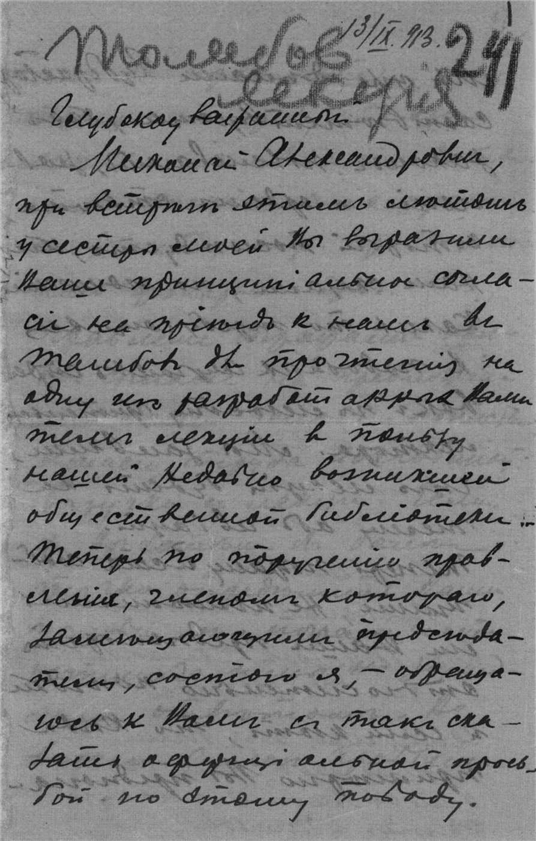 13/IX. 913.
241
Тамбов
лекция
Глубокоуважаемый
Михаил Александрович,
при встрѣчѣ этимъ лѣтомъ
у сестры моей Вы выразили
Ваше принципіальное согла-
сіе на пріѣздъ к намъ въ
Тамбовъ для прочтенія на
одну изъ разработанныхъ Вами
темъ лекціи в пользу
нашей недавно возникшей
общественной библіотеки...
Теперь по порученію прав-
ленія, членомъ котораго,
замѣщающимъ предсѣда-
теля, состою я, – обраща-
юсь к Вамъ съ такъ ска-
зать оффиціальной прось-
бой по этому поводу.